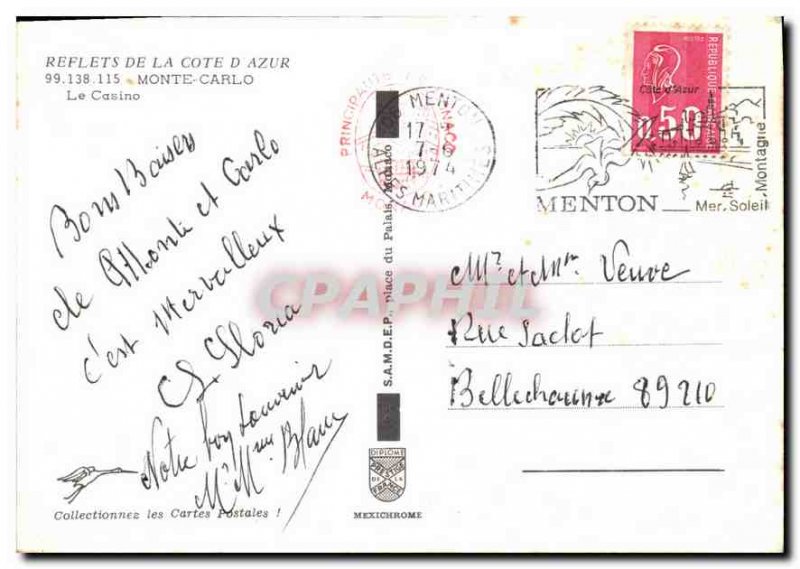 REFLETS DE LA COTE D'AZUR
99.138.115 - MONTE-CARLO
Le Casino
Bons Baisers
de Monte et Carlo
c'est Mervalleux
Gloria
Notre bon souvenir
Mr Mme Blanc
Collectionnez les Cartes Postales !
PRINCIPAUTE MONACO
06 MENTON
17 H
7-6
1974
ALPES MARITIMES
S.A.M.D.E.P., place du Palais, Monaco
DIPLOME
PRESTIGE
DE LA
FRANCE
MEXICHROME
REPUBLIQUE FRANCAISE
Côte d'Azur
0,50
MENTON __ Mer, Soleil, Montagne
Mr et Mme Veuve
Rue
Bellechaume 89210
CPAPHIL